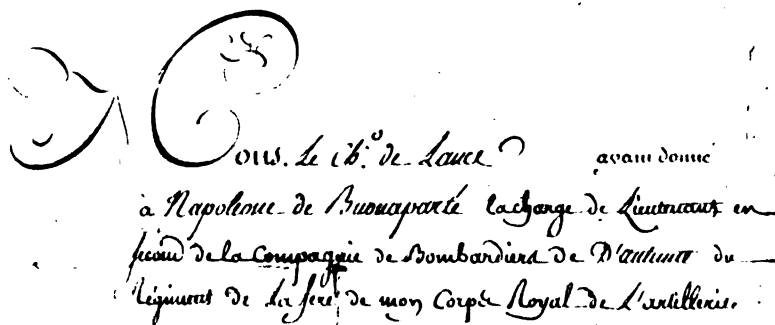 Mons. Le Ch.er de Lance ayant donné
à Napoleone de Buonaparté la charge de Lieutenant en
second de la Compagnie de Bombardiers de D'autume du
Régiment de La fere de mon Corps Royal de L'artillerie.